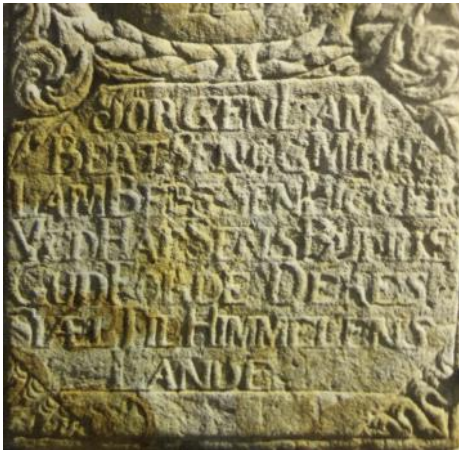 JÖRGEN LAM
BERTSEN OG
LAMBERTSEN LIGGER
VED HAFSENS BUND
GUD FORDE DERES
SIÆL TIL HIMMELENS
LANDE